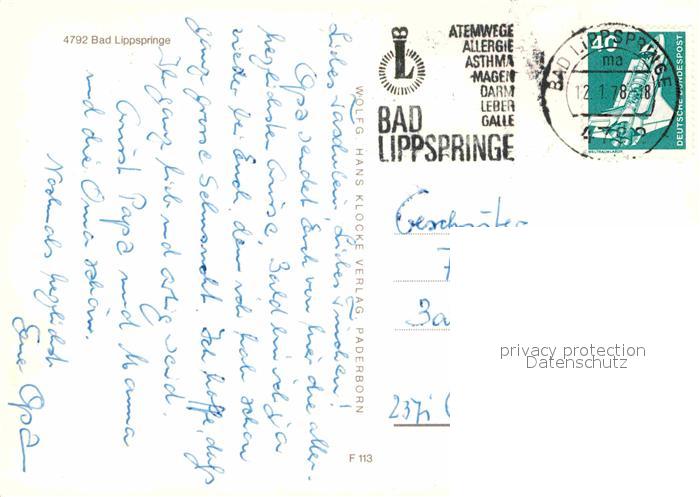 4792 Bad Lippspringe
BAD L
ATEMWEGE
ALLERGIE
ASTHMA
-MAGEN
DARM
LEBER
GALLE
BAD
LIPPSPRINGE
BAD LIPPSPRINGE
ma
12.1.78-18
4792
40
DEUTSCHE BUNDESPOST
WELTRAUMLABOR
Opa sendet Euch von hier die aller-
herzlichsten Grüsse. Bald bin ich ja
wieder bei Euch, denn ich hab schon
ganz grosse Sehnsucht. Ich hoffe, daß
Ihr ganz lieb und artig seid.
Grüsst Papa und Mama
und die Oma schön.
Nochmals herzlichst
Euer Opa
WOLFG. HANS KLOCKE VERLAG, PADERBORN
F 113
Geschwister
237
privacy protection
Datenschutz